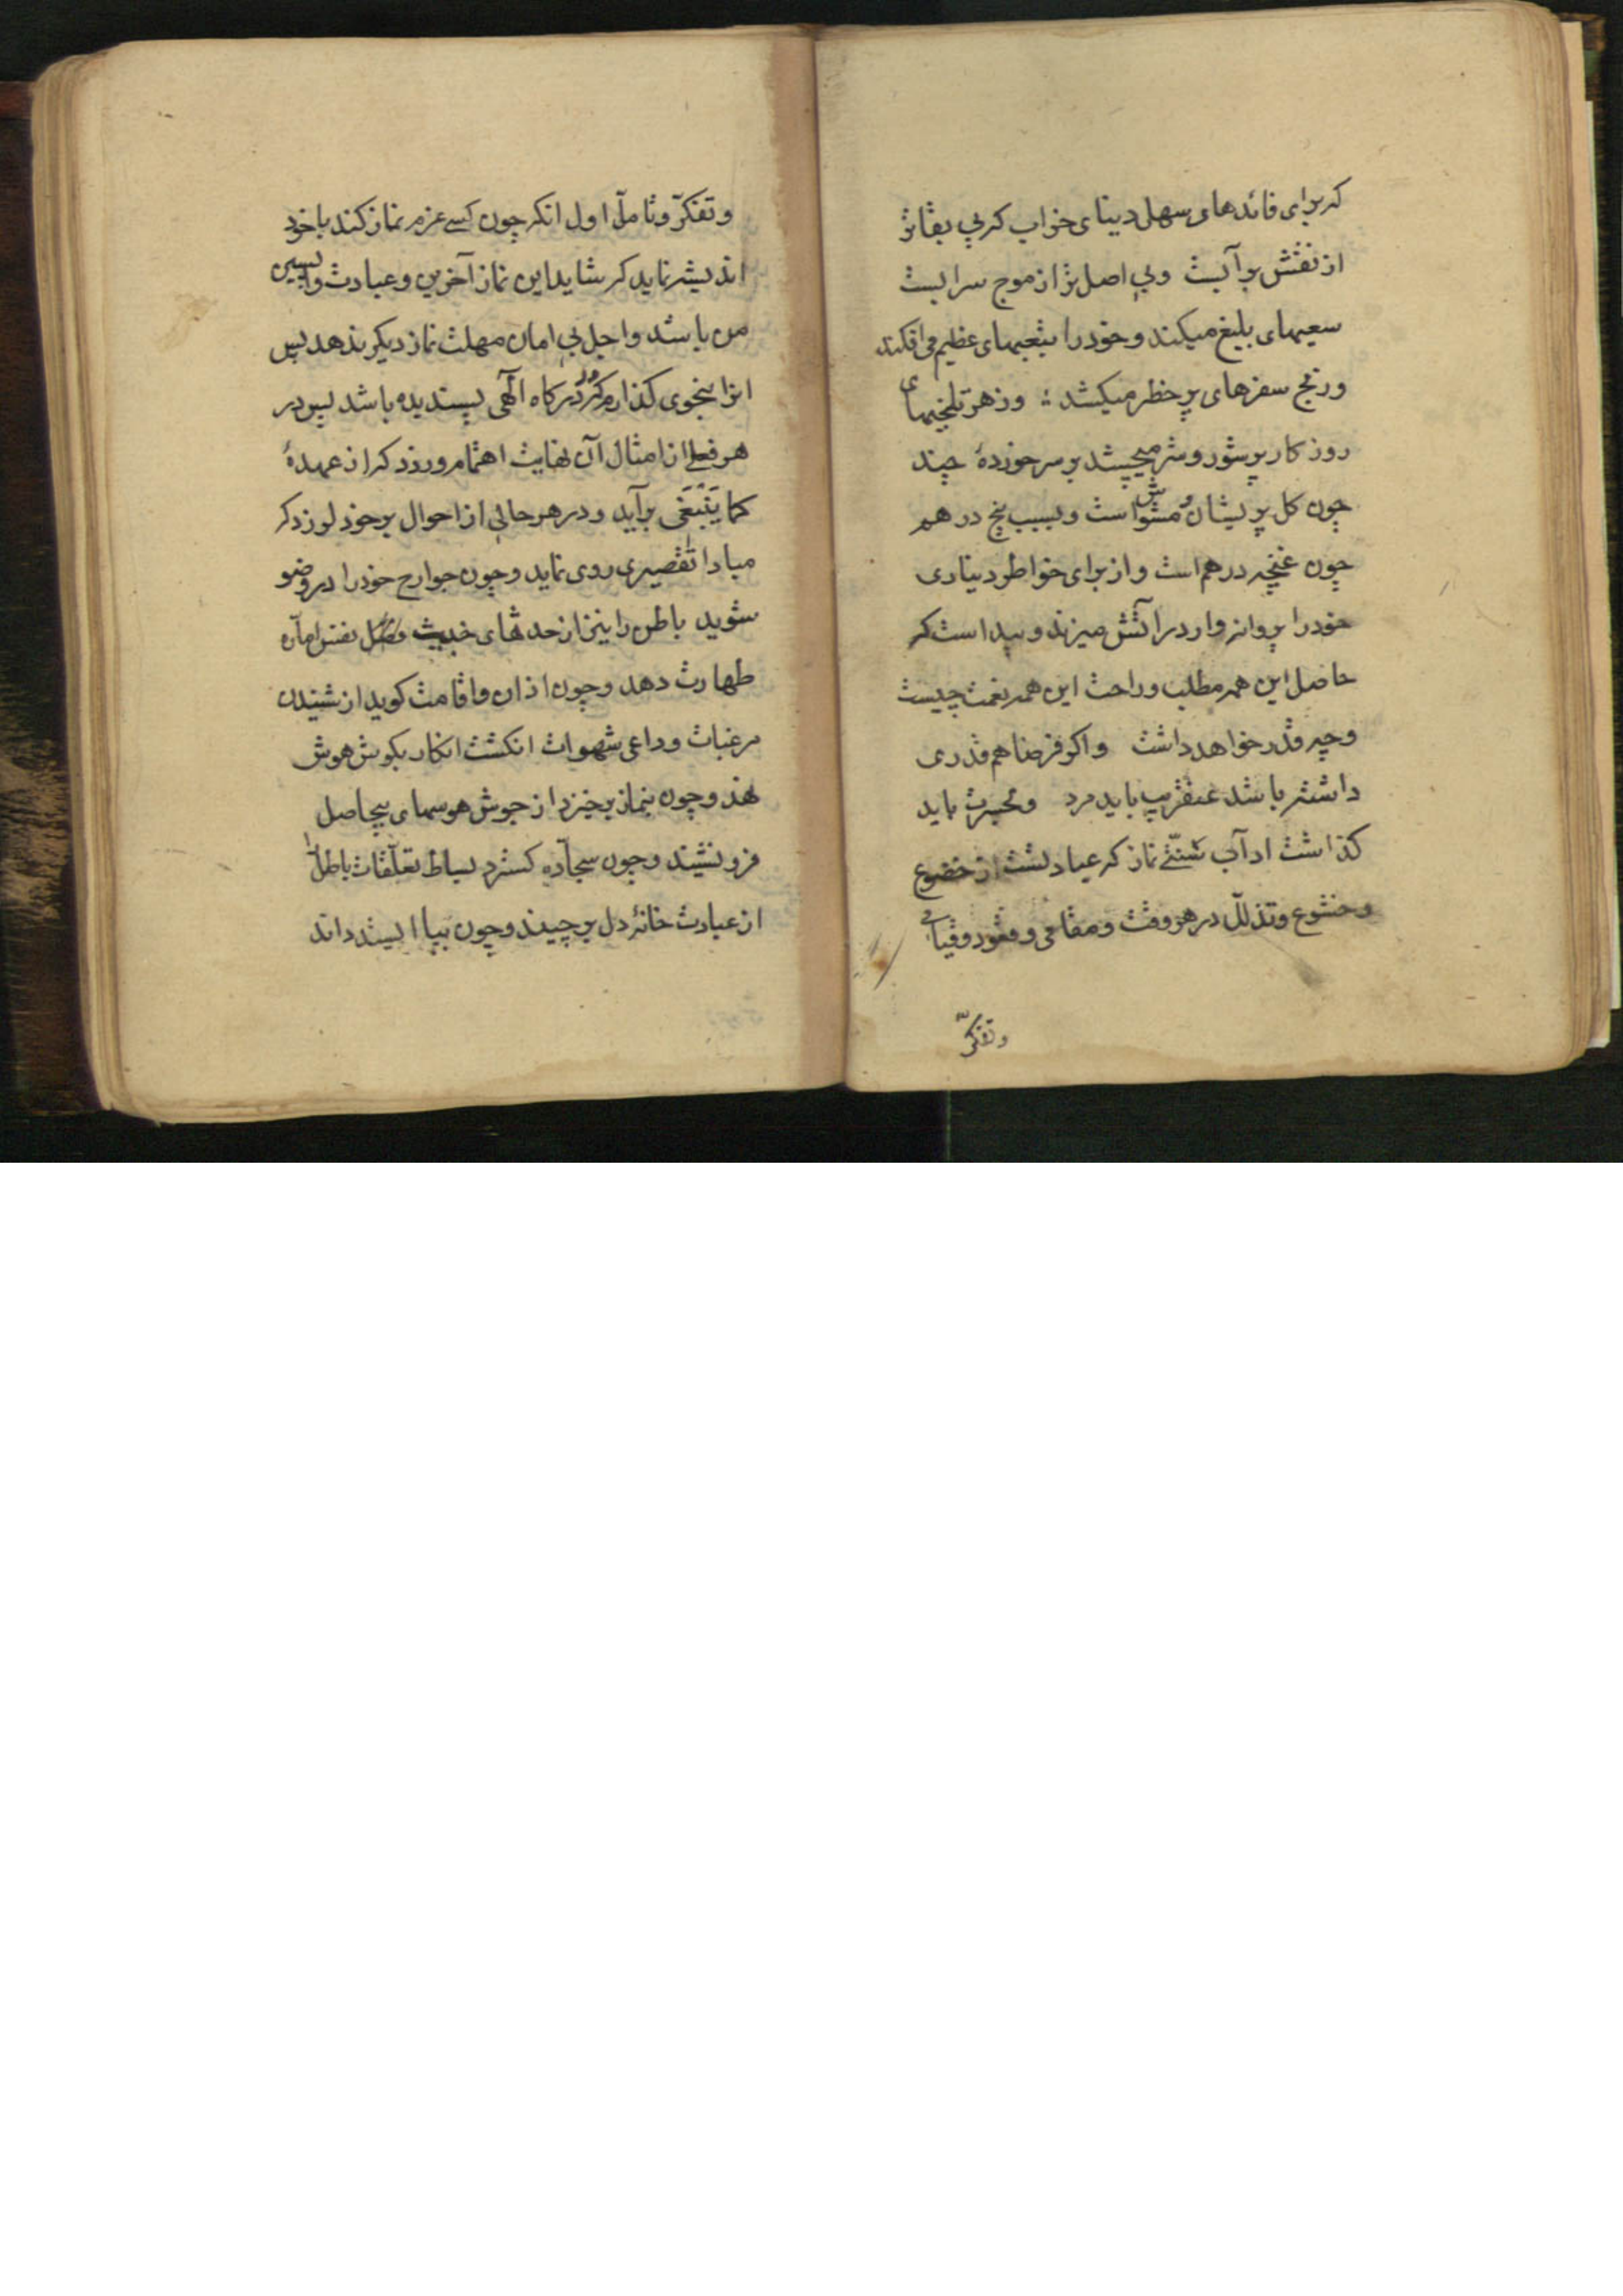 که برای فائدهای سهل دنیای خراب که بی بقاتر
از نقش بر آبست و بی اصل تر از موج سرابست
سعیهای بلیغ میکند و خود را بتعبهای عظیم می افکند
و رنج سفرهای پر خطر میکشد و زهر تلخیهای
روزکار پر شور و شر میچشد بر سر خوردهٔ چند
چون کل پریشان و مشوش است و بسبب پنج درهم
چون غنچه درهم است و از برای خواطر دیناری
خود را پروانه وار در آتش میزند و پیداست که
حاصل این همه مطلب و راحت این همه نعمت چیست
و چه قدر خواهد داشت و اکر فرضا هم قدری
داشته باشد عنقریب باید مرد و بحسرت باید
کذاشت ادآب نماز که عبادتست از خضوع
و خشوع و تذلل در هر وقت و مقامی و قعود و قیامی
و تفکر
و تفکر و تامل اول انکه چون کسی عزم نماز کند با خود
اندیشه نماید که شاید این نماز آخرین و عبادت واپسین
من باشد و اجل بی امان مهلت نماز دیکر ندهد پس
انرا بنحوی کذارم که در درکاه آلهی پسندیده باشد پس در
هر فعلی از امثال آن نهایت اهتمام ورزد که از عهدهٔ
کما یَنْبَغی برآید و در هر حالی از احوال بر خود لرزد که
مبادا تقصیری روی نماید و چون جوارح خود را در وضو
شوید باطن را نیز از حدثهای خبیث نفس اماره
طهارت دهد و چون اذان و اقامت کوید از شنیدن
مرغبات و داعی شهوات انکشت انکار بکوش هوش
نهد و چون بنماز برخیزد از جوش هوسهای بیحاصل
فرو نشیند و چون سجاده کسترد بساط تعلقات باطل را
از عبادت خانهٔ دل برچیند و چون بپا ایستد داند